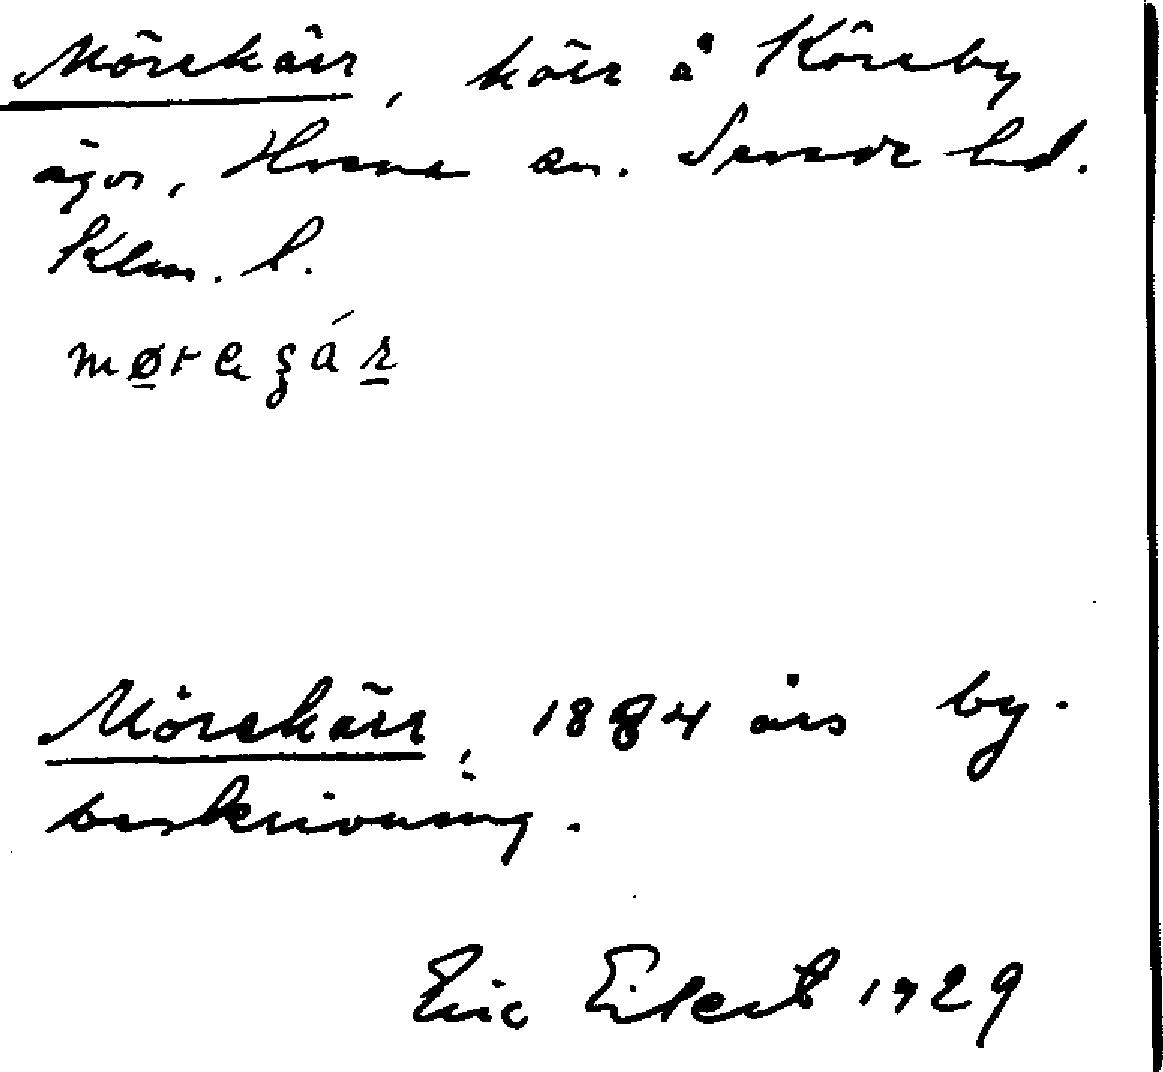 Mörekärr, kärr å Köreby
ägor, Hvena sn. Sevede hd.
Klm. l.
mørəgár
Mörekärr, 1884 års by-
beskrivning.
Eric 1929